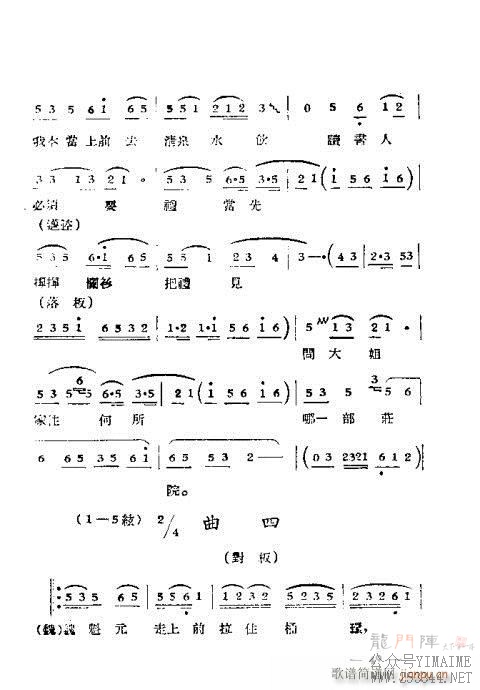 5 3 5 6 i 6 5 | 5 5 1 2 1 2 3 | 0 5 6 1 2
我本當上前去 清泉水飲 讀書人
3 3 1 3 2 1 · | 5 3 5 6·5 3·5 | 2 1 ( 1 5 6 1 6 )
必須要禮當先
(邁途)
5 3 5 6·i 6 5 3 5 | 5 5 1 2 3 | 3 — · ( 4 3 | 2·3 5 3
揮揮襴衫 把禮見
(落板)
2 3 5 1 6 5 3 2 | 1·2 1 1·1 5 6 1 6 ) | 5 1 3 2 1 ·
問大姐
5 3 5 5 6 5 6·5 3·5 | 2 1 ( 1·1 5 6 1 6 ) | 5 3 5 5 3 5
家住何所 哪一部莊
6 6 5 3 5 6 i | 6 5 5 3 2 — | ( 0 3 2321 6 1 2 )
院。
(1—5絃) 2/4 曲四
(對板)
5 3 5 6 5 | 5 5 6 1 | 1 2 3 2 5 2 3 5 | 2 3 2 6 1
(魏)魏魁元 走上前拉住桶環,
龍門陣
公众号YIMAIME
歌谱简谱网